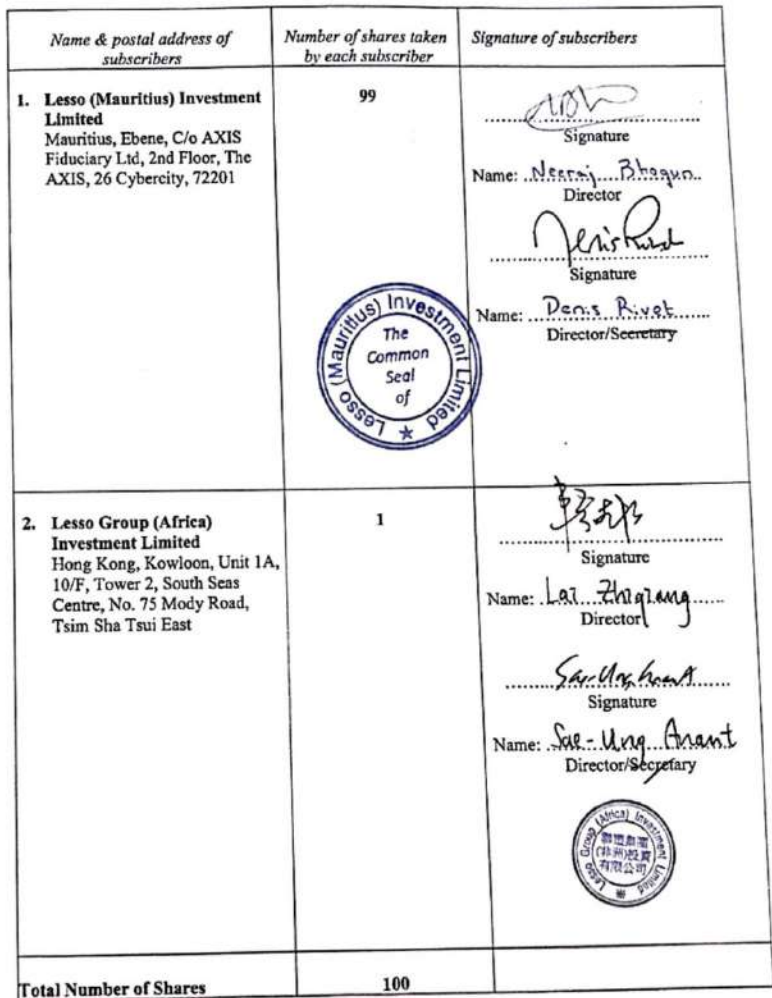 Name & postal address of
subscribers
Number of shares taken
by each subscriber
Signature of subscribers
1. Lesso (Mauritius) Investment
Limited
Mauritius, Ebene, C/o AXIS
Fiduciary Ltd, 2nd Floor, The
AXIS, 26 Cybercity, 72201
99
Signature
Name: Neeraj Bhogun
Director
Signature
Name: Denis Rivet
Director/Secretary
Lesso (Mauritius) Investment Limited
The
Common
Seal
of
2. Lesso Group (Africa)
Investment Limited
Hong Kong, Kowloon, Unit 1A,
10/F, Tower 2, South Seas
Centre, No. 75 Mody Road,
Tsim Sha Tsui East
1
Signature
Name: Lai Zhiqiang
Director
Sae-Ung Anant
Signature
Name: Sae-Ung Anant
Director/Secretary
Lesso Group (Africa) Investment Limited
(非洲)投資
有限公司
Total Number of Shares
100